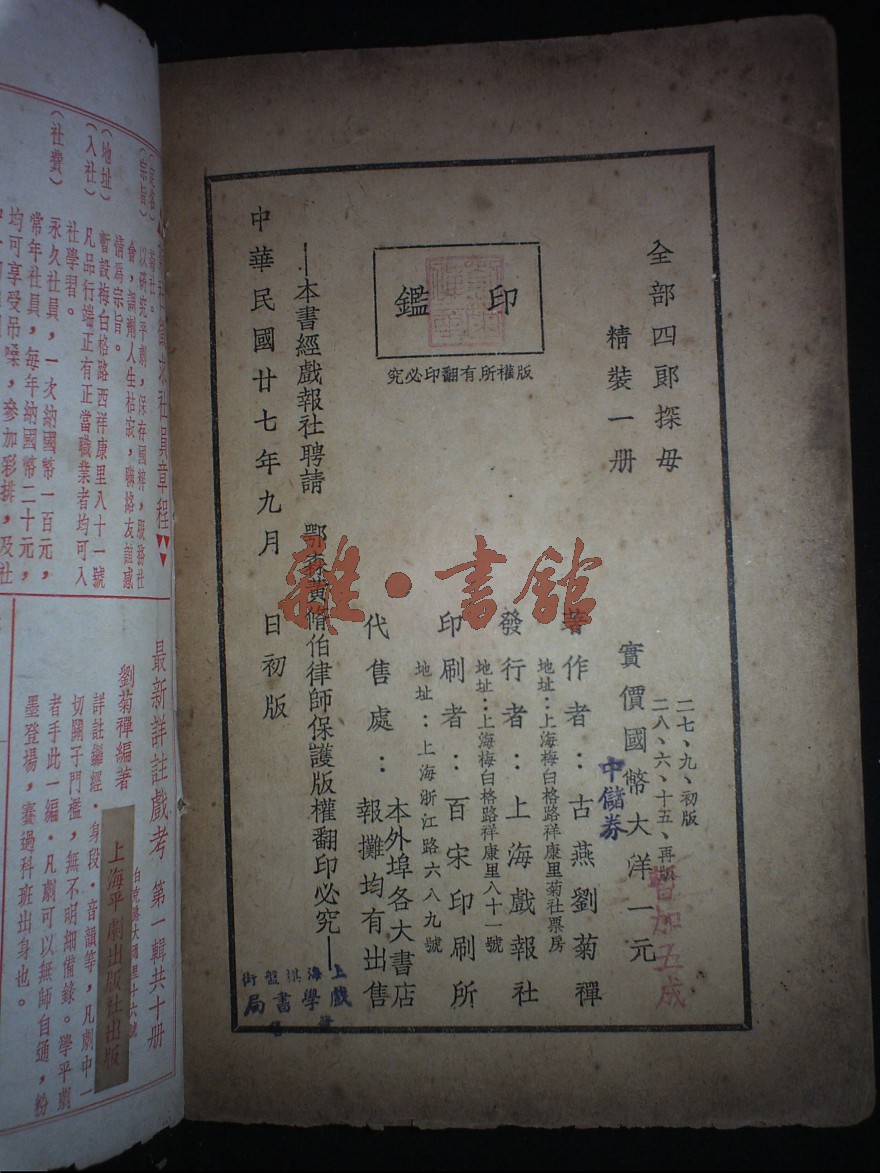 全部四郎探母
精裝一册
二七、九、初版
二八、六、十五、再版
實價國幣大洋一元
中儲券
暫加五成
著作者：古燕劉菊禪
地址：上海梅白格路祥康里菊社票房
發行者：上海戲報社
地址：上海梅白格路祥康里八十一號
印刷者：百宋印刷所
地址：上海浙江路六八九號
代售處：本外埠各大書店
報攤均有出售
印鑑
版權所有翻印必究
—本書經戲報社聘請 鄂森黃脩伯律師保護版權翻印必究—
中華民國廿七年九月 日初版
上海棋盤街
戲學書局
雜·書館
社員章程
(宗旨) 以研究平劇，保存國粹，服務社
會，調劑人生枯寂，聯絡友誼感
情爲宗旨。
(地址) 暫設梅白格路西祥康里八十一號
(入社) 凡品行端正有正當職業者均可入
社學習。
(社費) 永久社員，一次納國幣一百元，
常年社員，每年納國幣二十元，
均可享受吊嗓，參加彩排，及社
最新詳註戲考 第一輯共十册
劉菊禪編著
上海平劇出版社出版
詳註鑼經．身段．音韻等，凡劇中一
切關子門檻，無不明細備錄。學平劇
者手此一編．凡劇可以無師自通，粉
墨登場，賽過科班出身也。